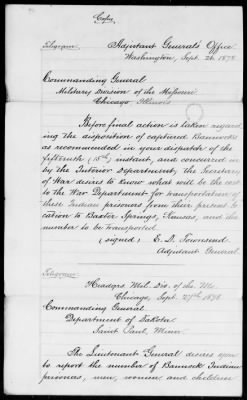 Copy
Telegram. Adjutant General's Office
Washington, Sept. 26. 1878.
Commanding General
Military Division of the Missouri
Chicago Illinois
Before final action is taken regard
ing the disposition of captured Bannocks
as recommended in your dispatch of the
fifteenth (15th) instant, and concurred in
by the Interior Department, the Secretary
of War desires to know what will be the cost
to the War Department for transportation of
these Indian prisoners from their present lo
cation to Baxter Springs, Kansas, and the
number to be transported.
(signed) E. D. Townsend.
Adjutant General
Telegram
Headqrs Mil. Div. of the Mo.
Chicago, Sept. 27th 1878.
Commanding General
Department of Dakota
Saint Paul, Minn.
The Lieutenant General desires you
to report the number of Bannock Indian
prisoners, men, women and children